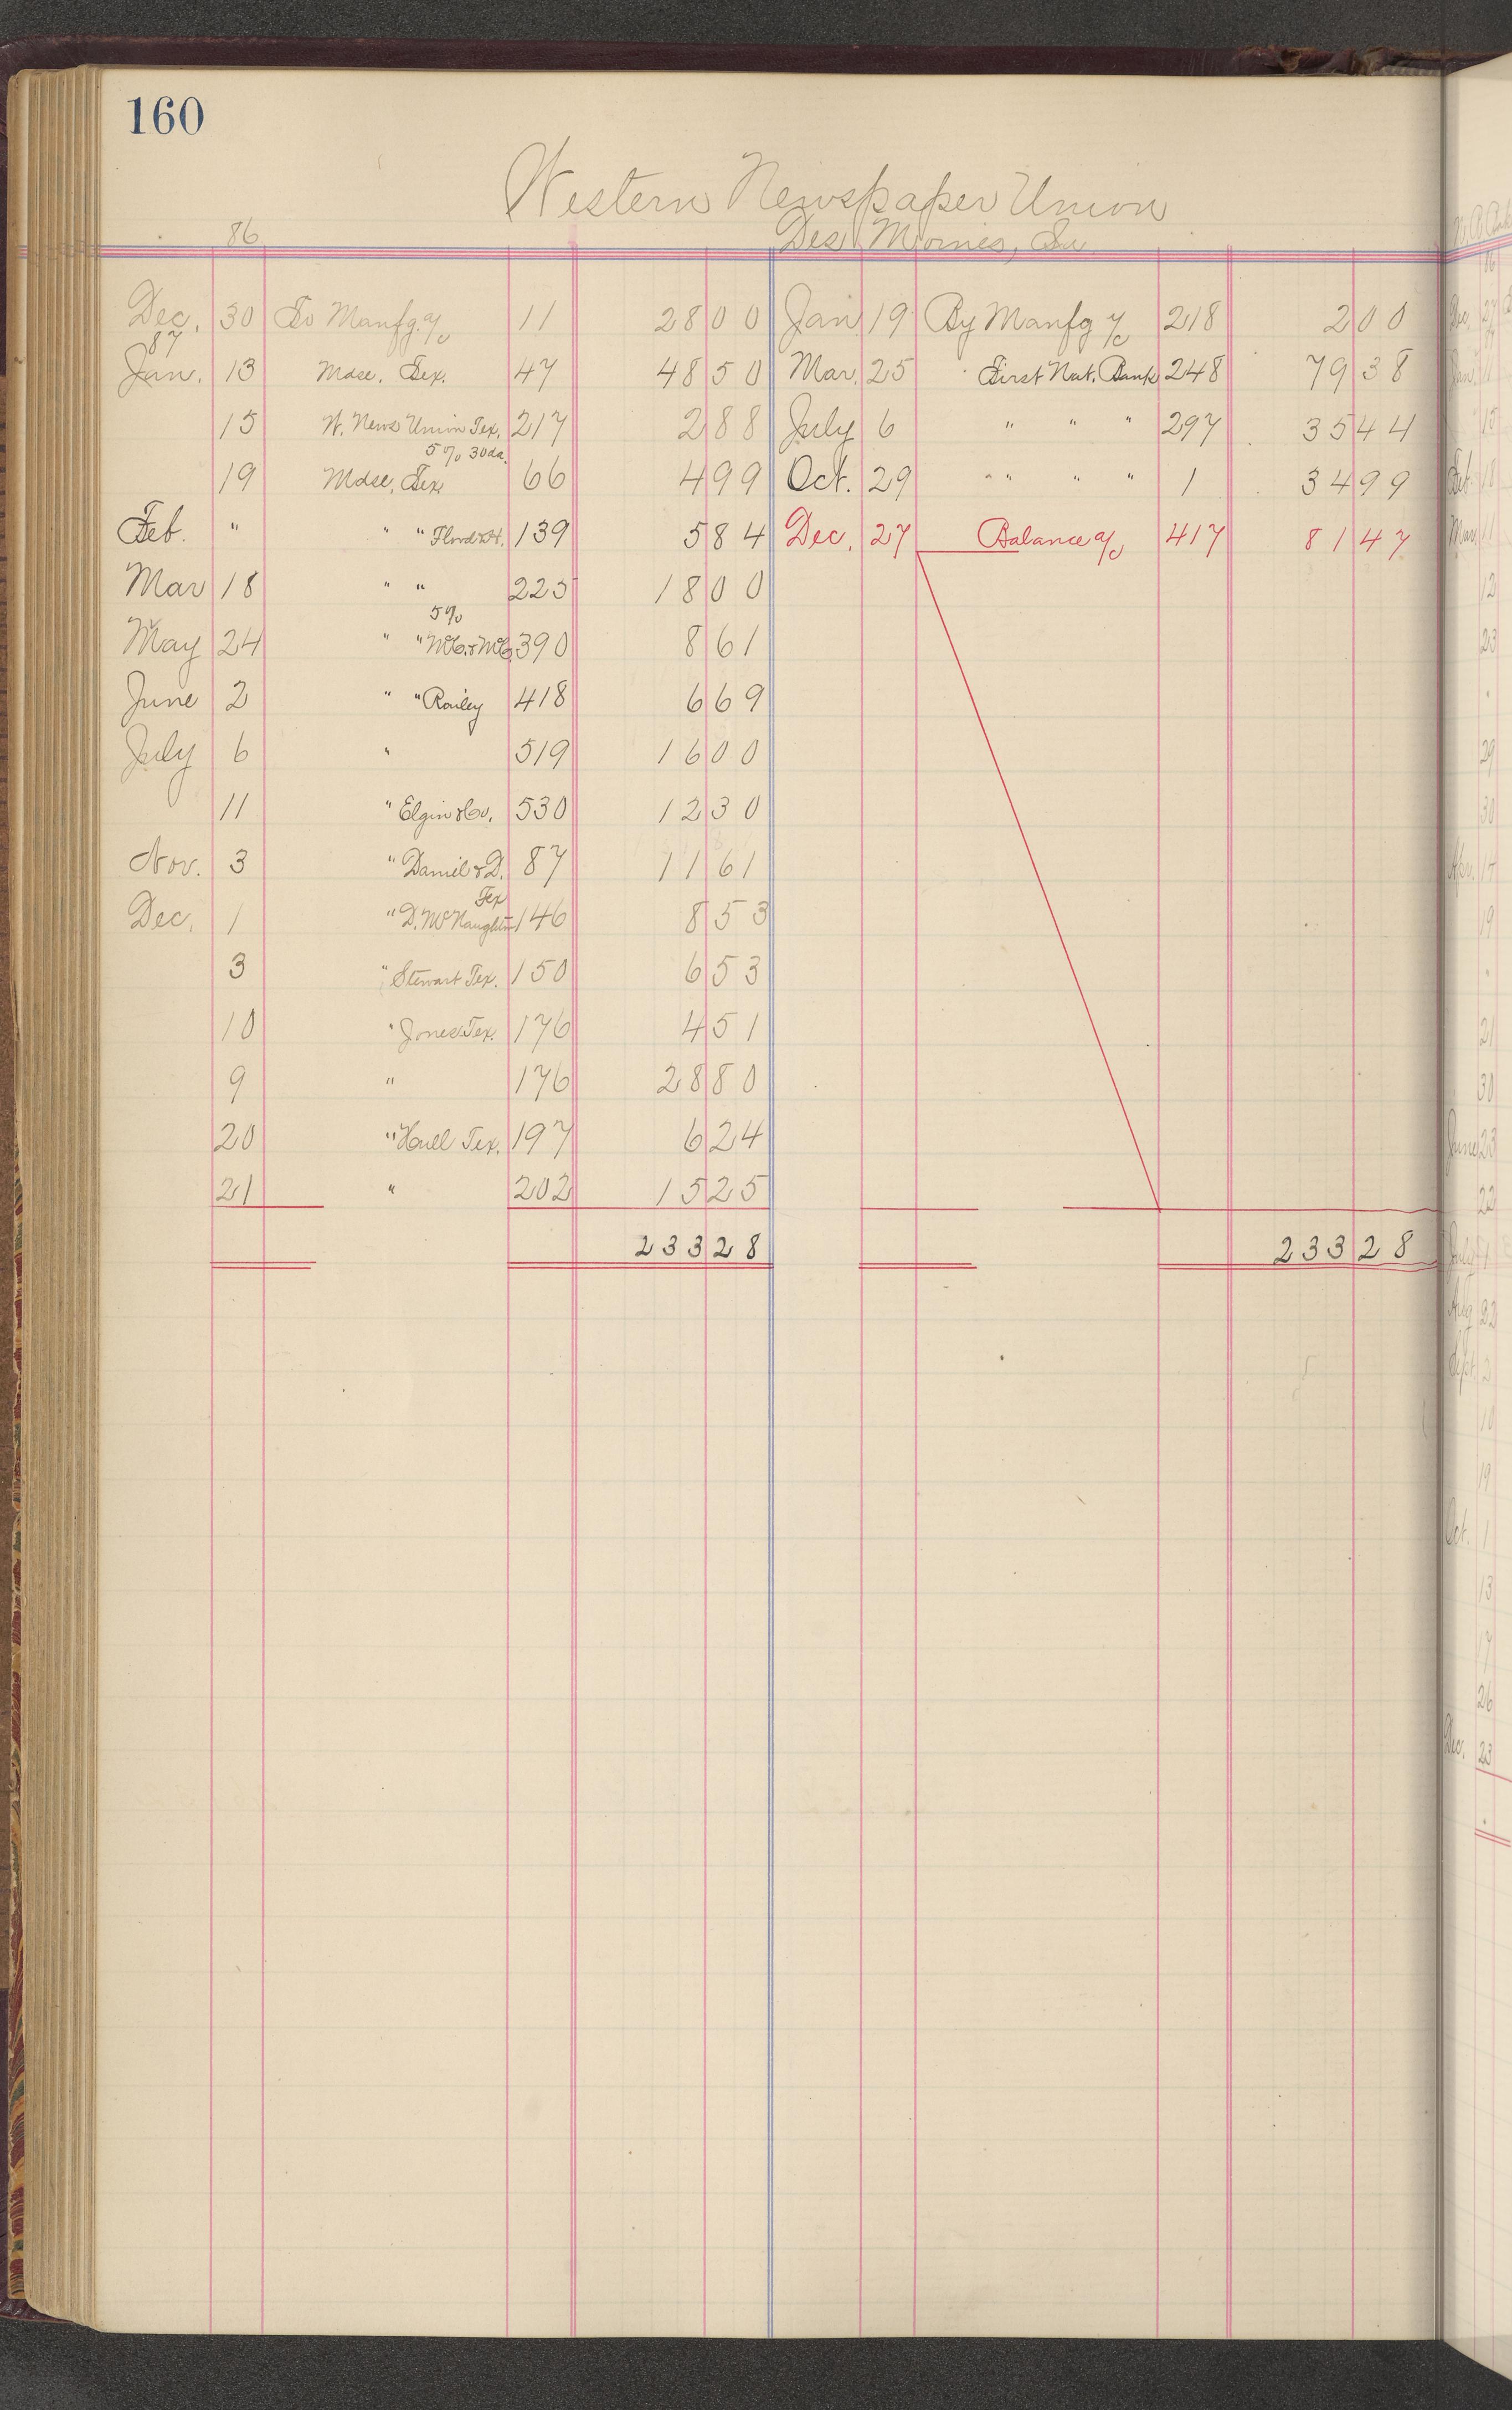 160
Western Newspaper Union
Des Moines, Ia
86
Dec. 30 To Manfg. a/c 11 28 00 Jan 19 By Manfg a/c 218 2 00
87
Jan. 13 Mdse. Tex. 47 48 50 Mar. 25 First Nat. Bank 248 79 38
15 W. News Union Tex. 217 2 88 July 6 " " " 297 35 44
5% 30da.
19 Mdse, Tex 66 4 99 Oct. 29 " " " " 1 34 99
Feb. " " " 139 5 84 Dec. 27 Balance a/c 417 81 47
Mar 18 " " 225 18 00
5%
May 24 " " McC. & McC. 390 8 61
June 2 " " Railey 418 6 69
July 6 " 519 16 00
11 " Elgin & Co. 530 12 30
Nov. 3 " Daniel & D. 87 11 61
Tex
Dec. 1 " D. McNaughton 146 8 53
3 " Stewart Tex. 150 6 53
10 " Jones Tex. 176 4 51
9 " 176 28 80
20 " Hall Tex. 197 6 24
21 " 202 15 25
233 28 233 28